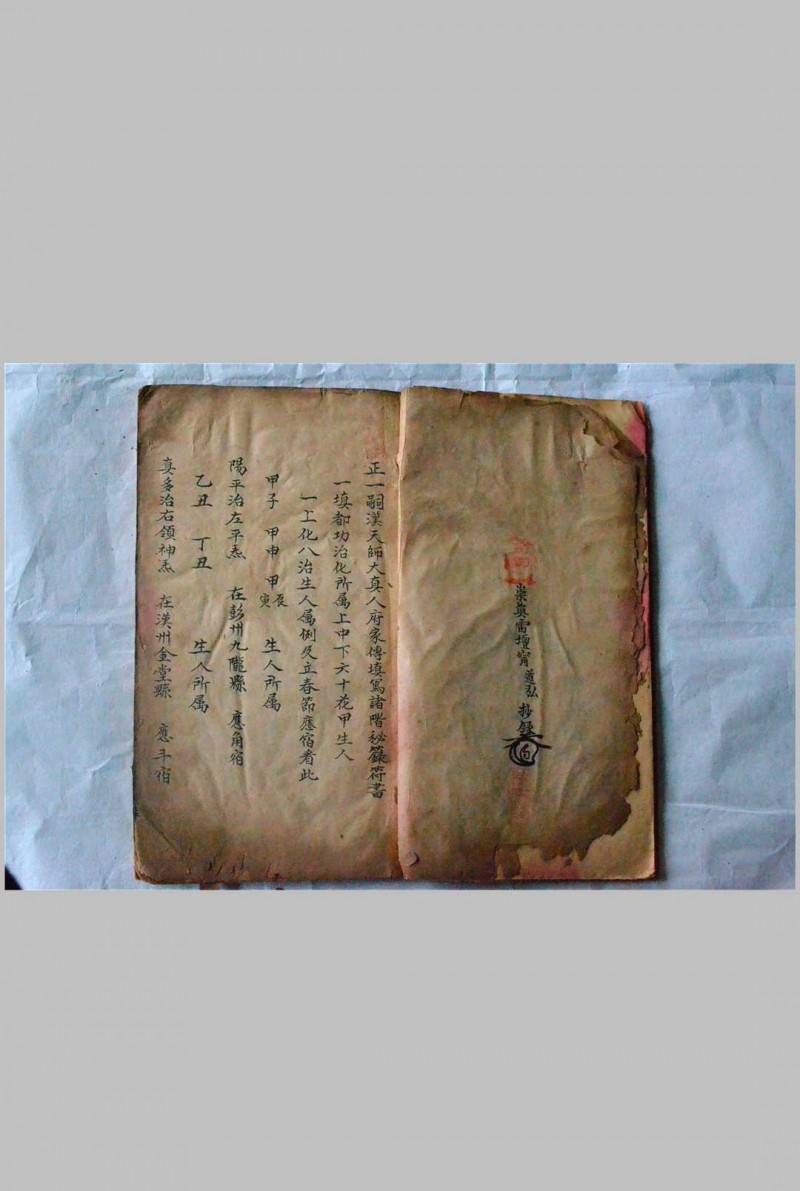 崇英雷壇甯道弘抄錄
正一嗣漢天師大真人府家傳填寫諸階秘籙符書
一填都功治化所屬上中下六十花甲生人
一上化八治生人屬例及立春節應宿者此
甲子 甲申 甲寅辰 生人所属
陽平治左平炁 在彭州九隴縣 應角宿
乙丑 丁丑 生人所属
真多治右領神炁 在漢州金堂縣 應斗宿